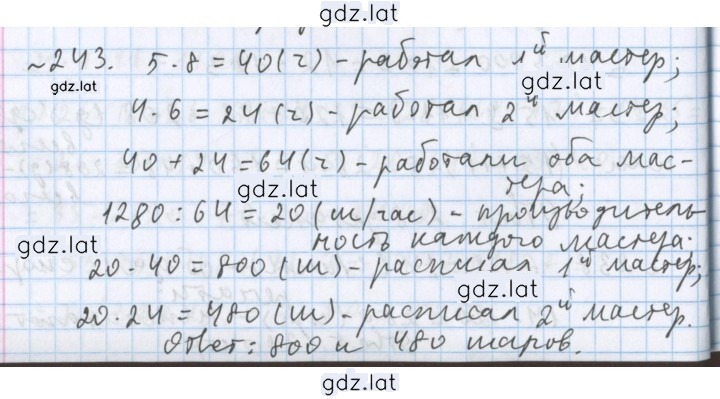 gdz.lat
~243. 5·8=40(ч)-работал 1й мастер;
gdz.lat
4·6=24(ч)-работал 2й мастер;
40+24=64(ч)-работали оба мас-
gdz.lat
тера;
1280:64=20(ш/час)-производитель
gdz.lat
ность каждого мастера.
20·40=800(ш)-расписал 1й мастер;
gdz.lat
20·24=480(ш)-расписал 2й мастер.
Ответ: 800 и 480 шаров.
gdz.lat